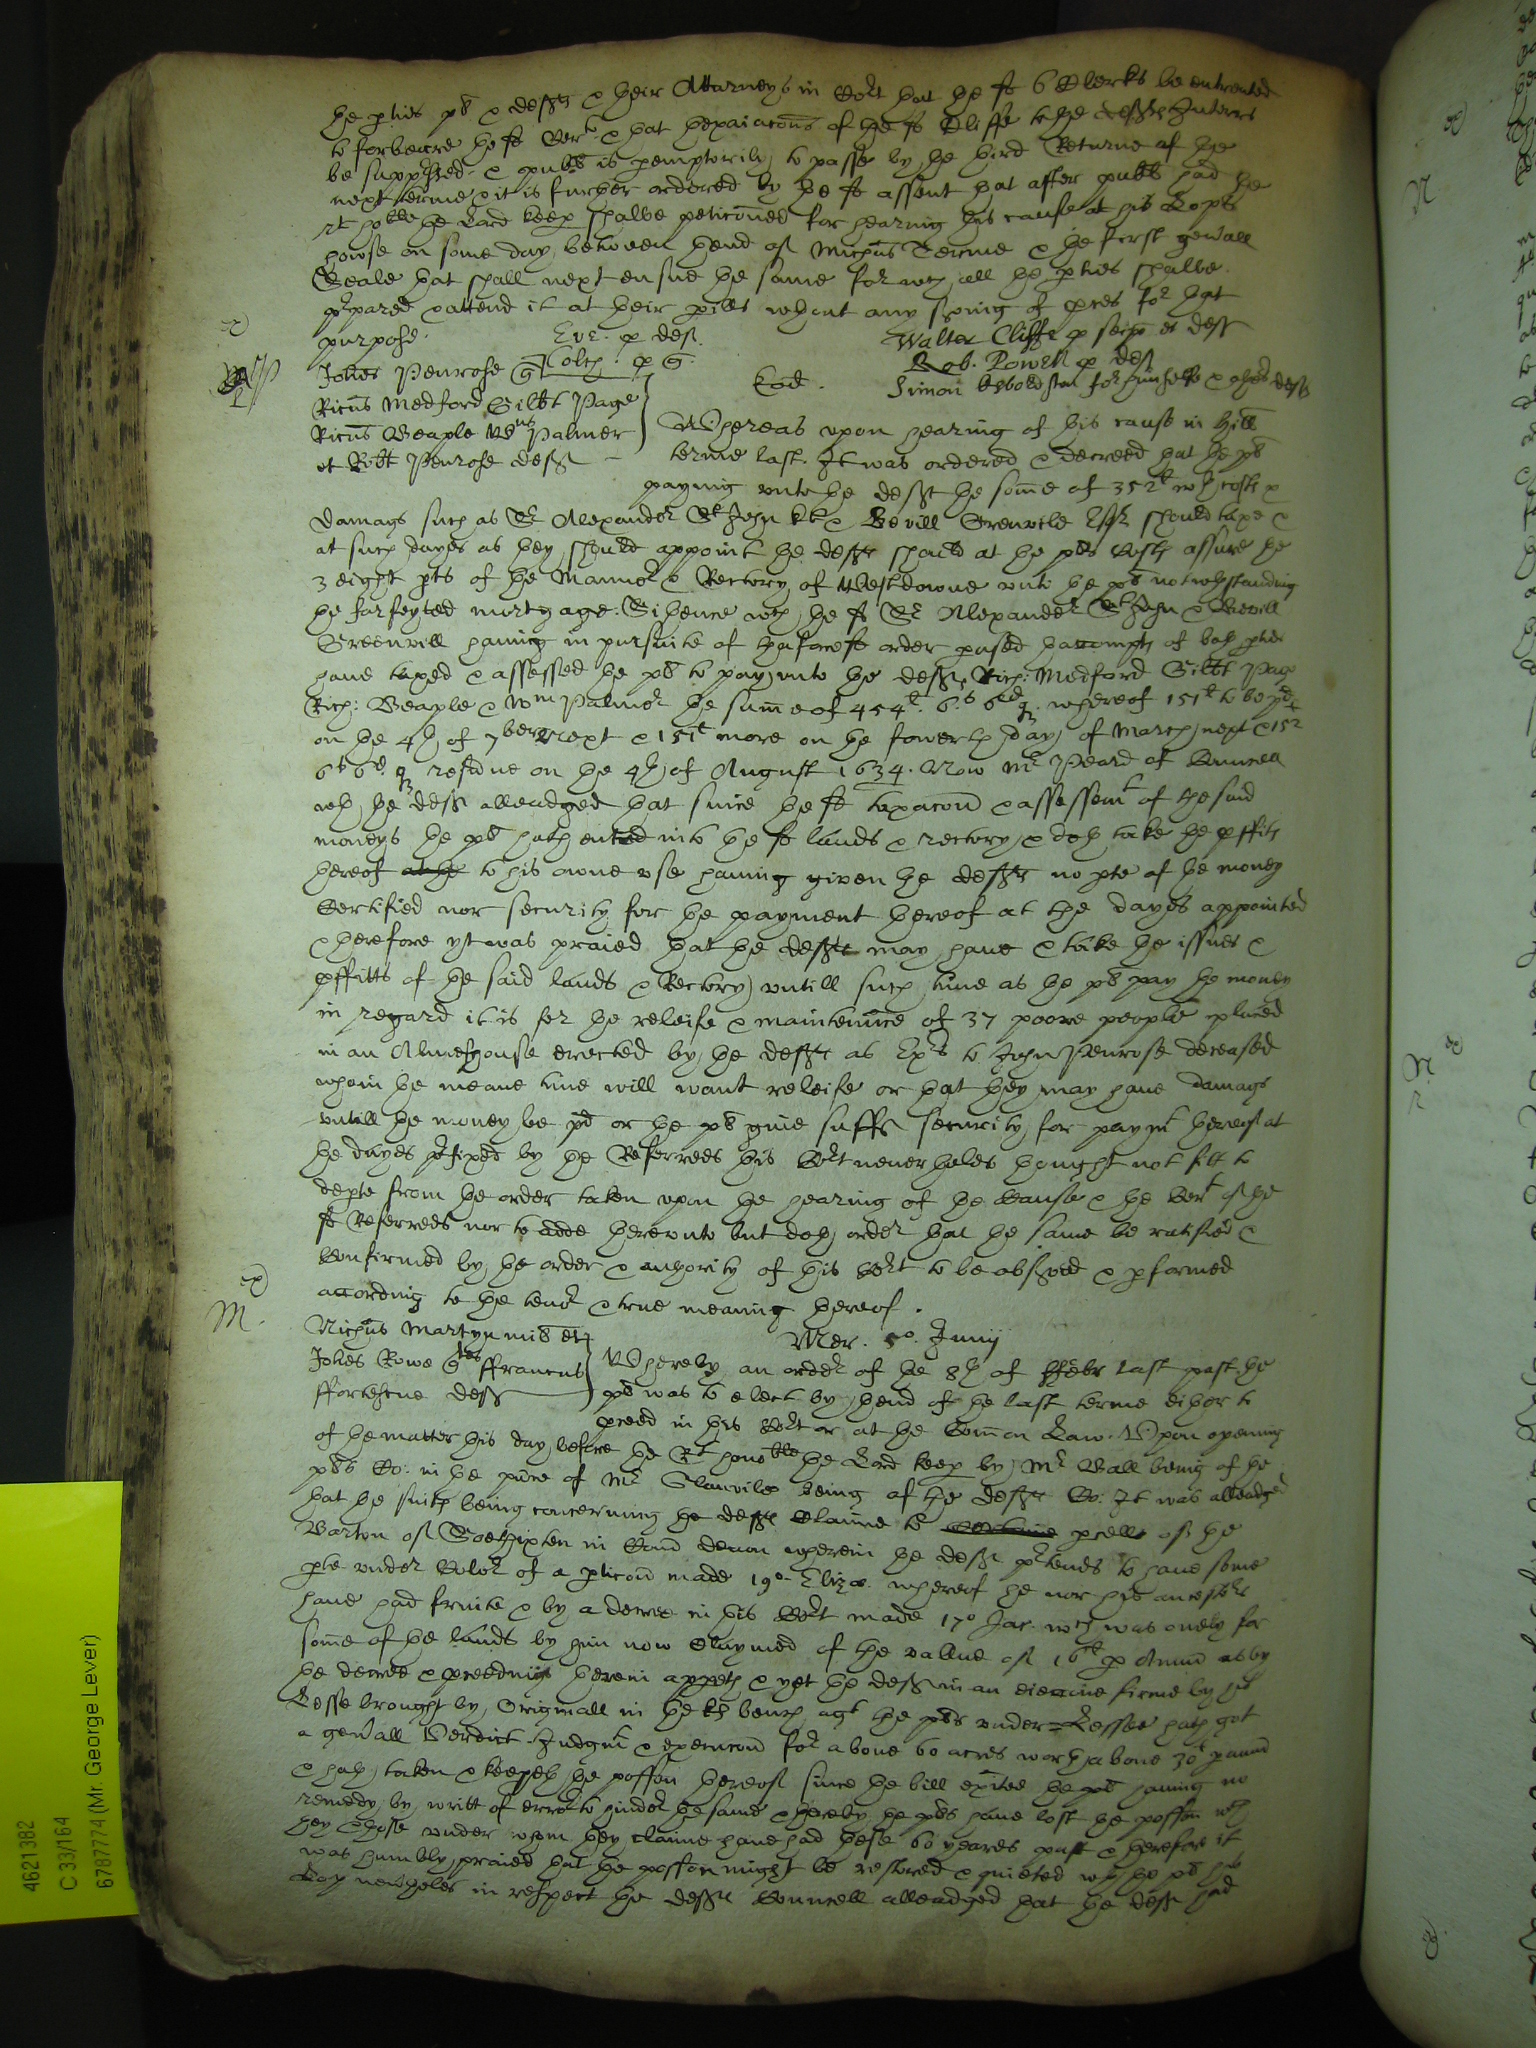 the pties pls & defts & their Attorneys in Cort that the sd 6 Clerks be entreated
to forbeare the sd Cert & that thexaiacons of the sd Cliffe to the defts Inters
be suppressed & publi: is pemptorily to passe by the third Returne of the
next terme & it is further ordered by the sd assent that after publi: had the
rt hoble the Lord keep shalbe peticoned for hearing this cause at his Lopps
howse on some day betwen thend of Michas Terme & the first gen'all
Seale that shall next ensue the same for wch all the pties shalbe
prpared & attend it at their pills wthout any suing of pces for that
purpose. Eve. p def. Walter Cliffe p seipo et deff
Colty. p q. Rob. Powell p def
Johes Penrose q Eod. Simon for himselfe & other defts
Ricus Medford Gilbt Page
Ricus Beaple Wms Palmer Whereas upon hearing of this cause in Hill
et Robt Penrose deffts terme last. It was ordered & decreed that the pl
paying unto the defts the some of 352l wth costs &
damags such as Sr Alexander St John kt & Bevill Grenvile Esqr should taxe &
at such dayes as they should appoint the defts should at the pls costs assure the
3 eight pts of the Mannor & Rectory of Westdowne unto the pl notwthstanding
the forfeyted mortgage. Sithence wch the sd Sr Alexander St John & Bevill
Greenvill having in pursuite of thaforesd order pused thaccompts of both pties
have taxed & assessed the pl to pay unto the defts Rich: Medford Gilbt Page
Rich: Beaple & Wm Palmer the summe of 454l. 6s 6d q. whereof 151l to be pd
on the 4th of 7ber next & 151l more on the fowerth day of March next & 152
6s 6d q residue on the 4th of August 1634. Now Mr Peard of Councell
wth the deft alleadged that since the sd taxacon & assessemt of the said
moneys the pl hath entred into the sd lands & rectory & doth take the pffits
thereof at the to his owne use having given the defts no pte of the money
Certified nor security for the payment thereof at the dayes appointed
& therefore yt was praied that the defts may have & take the issues &
pffitts of the said lands & Rectory untill such time as the pl pay the money
in regard it is for the releife & maintenance of 37 poore people placed
in an Almeshouse erected by the defts as Exrs to John Penrose deceased
whom the meane time will want releife or that they may have damags
untill the money be pd or the pl give suff security for paymt thereof at
the dayes prfixed by the Referrees this Cort nevertheles thought not fitt to
depte from the order taken upon the hearing of the Cause & the Cert of the
sd Referrees nor to adde thereunto but doth order that the same be ratified &
Confirmed by the order & authority of this Cort to be obsrved & pformed
according to the tenor & true meaning thereof.
Nichus Martyn miles et Mer. 5o. Junij
Johes Rowe qtes ffrancus Whereby an order of the 8th of ffebr last past the
ffortescue deft pl was to elect by thend of the last terme either to
pceed in this Cort or at the Common Law. Upon opening
of the matter this day before the Rt honoble the Lord keep by Mr Ball being of the
pls Co: in the pnce of Mr Glanvile being of the defts Co: It was alleadged
that the suite being concerning the defts Claime to pcells of the
Barton of in Com Devon wherein the deft prtends to have some
pte under Color of a pticon made 19o. Elize. whereof he nor his ancestors
have had fruite & by a decree in this Cort made 17o Jac. wch was onely for
some of the lands by him now Claymed of the vallue of 16l p Annu as by
the decree & pceedings therein appeth & yet the deft in an eieccone firme by
Lessee brought by Originall in the ks bench agt the pls under Lessee hath got
a gen'all Verdict Judgmt & execucon for above 60 acres worth above 30l p annu
& hath taken & keepeth the possion thereof since the bill exited the pls having no
remedy by writt of error to hinder the same & thereby the pls have lost the possion wch
they & those under whom they claime have had these 60 yeares past & therefore it
was humbly praied that the possion might be restored & quieted wth the pls
Lop nevtheles in respect the defts Councell alleadged that the deft had
4621382
C 33/164
6787774 (Mr. George Lever)